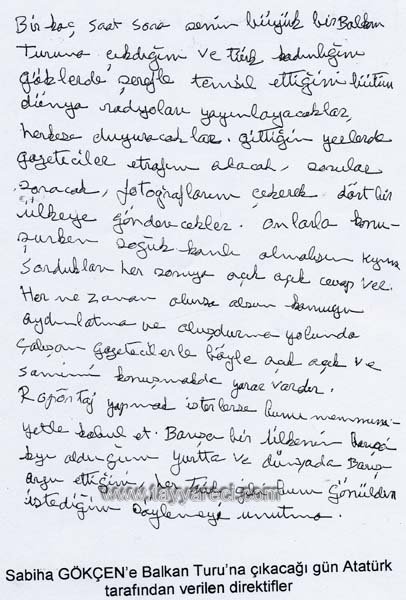 Bir kaç saat sonra senin büyük bir Balkan
Turuna çıktığını ve Türk kadınlığını
göklerde şerefle temsil ettiğini bütün
dünya radyoları yayınlayacaklar,
herkese duyuracaklar. Gittiğin yerlerde
gazeteciler etrafını alacak, sorular
soracak, fotoğraflarını çekerek dört bir
ülkeye gönderecekler. Onlarla konu-
şurken soğuk kanlı olmalısın kızım
Sordukları her soruya açık açık cevap ver.
Her ne zaman olursa olsun kamuoyu
aydınlatma ve oluşdurma yolunda
Çalışan gazetecilerle böyle açık açık ve
samimi konuşmakda yarar vardır.
Röportaj yapmak isterlerse bunu memnuni-
yetle kabul et. Barışçı bir ülkenin
olduğum yurtta ve dünyada Barış
arzu ettiğini, her Türk gönülden
istediğini söylemeyi unutma.
www.tayyareci.com
Sabiha GÖKÇEN'e Balkan Turu'na çıkacağı gün Atatürk
tarafından verilen direktifler